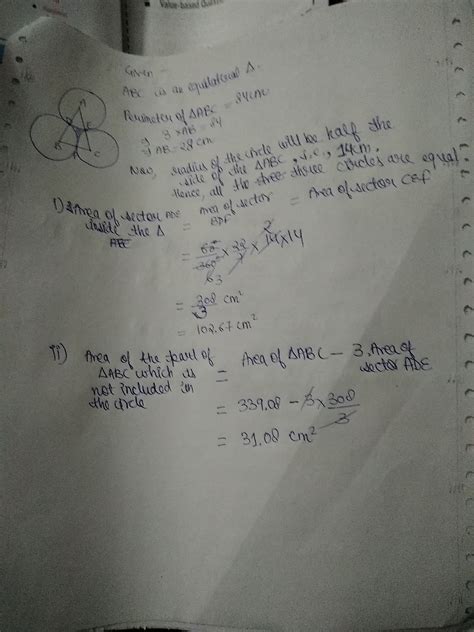 Value-based Questi
Given -
ABC is an equilateral Δ.
Perimeter of ΔABC = 84cm
⇒ 3 × AB = 84
⇒ AB = 28 cm
Now, radius of the circle will be half the
side of the ΔABC, i.e., 14cm.
Hence, all the three three circles are equal.
i) Area of sector ADE inside the Δ ABC = Area of sector BDF = Area of sector CEF
= 60°/360° × 22/7 × 14 × 14
= 308/3 cm²
= 102.67 cm²
ii) Area of the part of ΔABC which is not included in the circle = Area of ΔABC - 3. Area of sector ADE
= 339.08 - 3 × 308/3
= 31.08 cm²